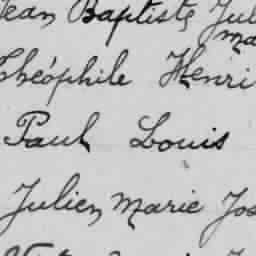 Jean Baptiste Jul
ma
Théophile Henri
Paul Louis
Julien Marie Jos